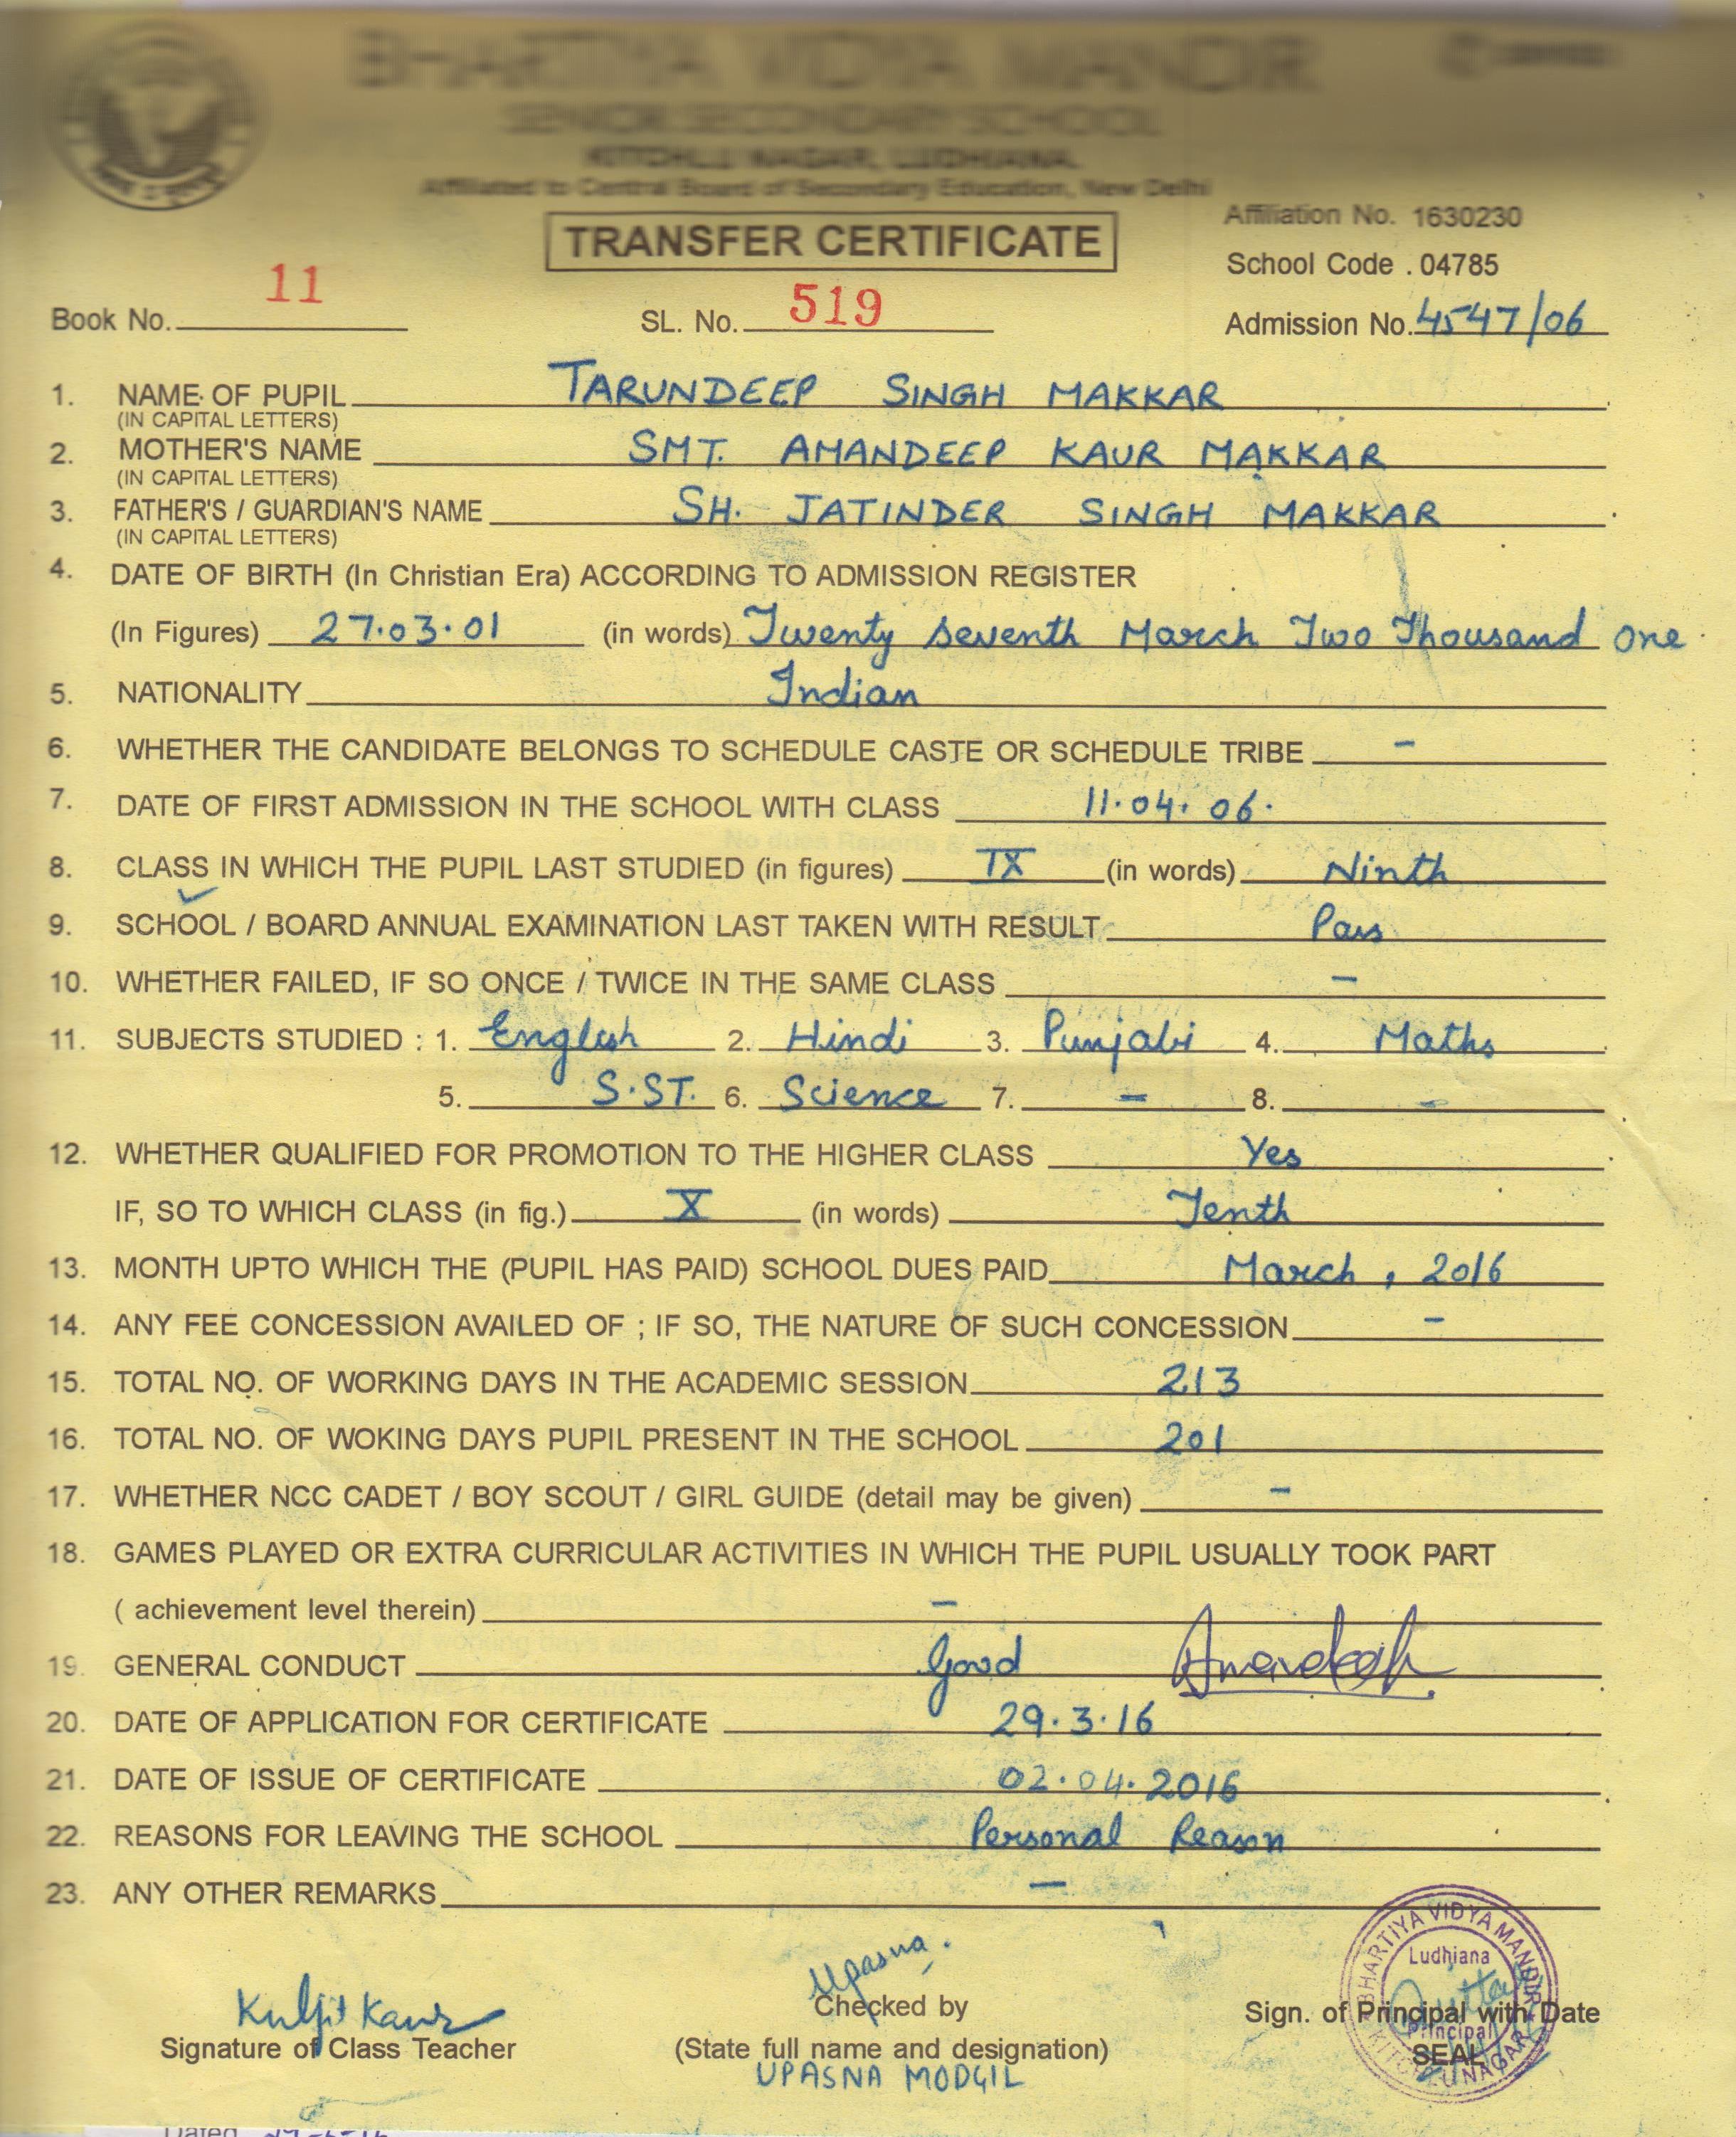 BHARTIYA VIDYA MANDIR
SENIOR SECONDARY SCHOOL
KITCHLU NAGAR, LUDHIANA
Affiliated to Central Board of Secondary Education, New Delhi
TRANSFER CERTIFICATE
Affiliation No. 1630230
School Code . 04785
Book No. 11 SL. No. 519 Admission No. 4547/06
1. NAME OF PUPIL TARUNDEEP SINGH MAKKAR
(IN CAPITAL LETTERS)
2. MOTHER'S NAME SMT. AMANDEEP KAUR MAKKAR
(IN CAPITAL LETTERS)
3. FATHER'S / GUARDIAN'S NAME SH. JATINDER SINGH MAKKAR
(IN CAPITAL LETTERS)
4. DATE OF BIRTH (In Christian Era) ACCORDING TO ADMISSION REGISTER
(In Figures) 27.03.01 (in words) Twenty seventh March Two Thousand one
5. NATIONALITY Indian
6. WHETHER THE CANDIDATE BELONGS TO SCHEDULE CASTE OR SCHEDULE TRIBE -
7. DATE OF FIRST ADMISSION IN THE SCHOOL WITH CLASS 11.04.06.
8. CLASS IN WHICH THE PUPIL LAST STUDIED (in figures) IX (in words) Ninth
9. SCHOOL / BOARD ANNUAL EXAMINATION LAST TAKEN WITH RESULT Pass
10. WHETHER FAILED, IF SO ONCE / TWICE IN THE SAME CLASS -
11. SUBJECTS STUDIED : 1. English 2. Hindi 3. Punjabi 4. Maths
5. S.ST. 6. Science 7. - 8. -
12. WHETHER QUALIFIED FOR PROMOTION TO THE HIGHER CLASS Yes
IF, SO TO WHICH CLASS (in fig.) X (in words) Tenth
13. MONTH UPTO WHICH THE (PUPIL HAS PAID) SCHOOL DUES PAID March, 2016
14. ANY FEE CONCESSION AVAILED OF ; IF SO, THE NATURE OF SUCH CONCESSION -
15. TOTAL NO. OF WORKING DAYS IN THE ACADEMIC SESSION 213
16. TOTAL NO. OF WOKING DAYS PUPIL PRESENT IN THE SCHOOL 201
17. WHETHER NCC CADET / BOY SCOUT / GIRL GUIDE (detail may be given) -
18. GAMES PLAYED OR EXTRA CURRICULAR ACTIVITIES IN WHICH THE PUPIL USUALLY TOOK PART
( achievement level therein) -
19. GENERAL CONDUCT Good
20. DATE OF APPLICATION FOR CERTIFICATE 29.3.16
21. DATE OF ISSUE OF CERTIFICATE 02.04.2016
22. REASONS FOR LEAVING THE SCHOOL Personal Reason
23. ANY OTHER REMARKS -
BHARTIYA VIDYA MANDIR KITCHLU NAGAR
Ludhiana
Principal
Kuljit Kaur
Upasna.
Signature of Class Teacher
Checked by
Sign. of Principal with Date
(State full name and designation)
SEAL
UPASNA MODGIL
Dated